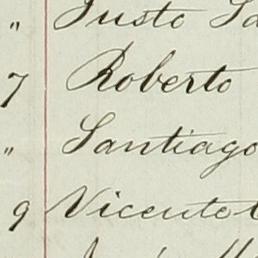 " Justo
7 Roberto
" Santiago
9 Vicente